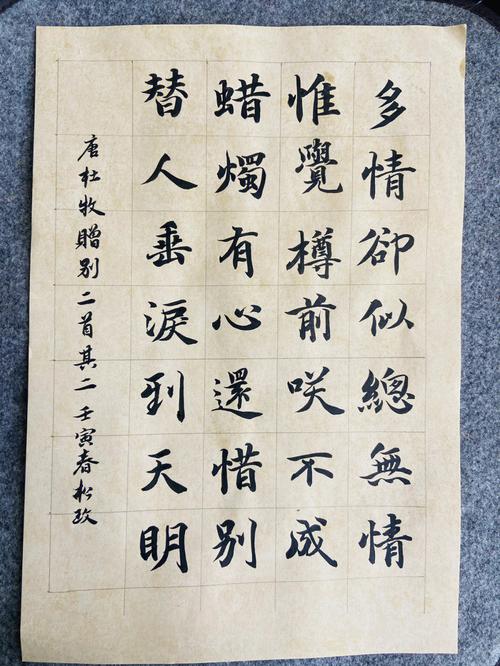 多情卻似總無情
惟覺樽前咲不成
蜡燭有心還惜別
替人垂淚到天明
唐杜牧贈別二首其二 壬寅春松政